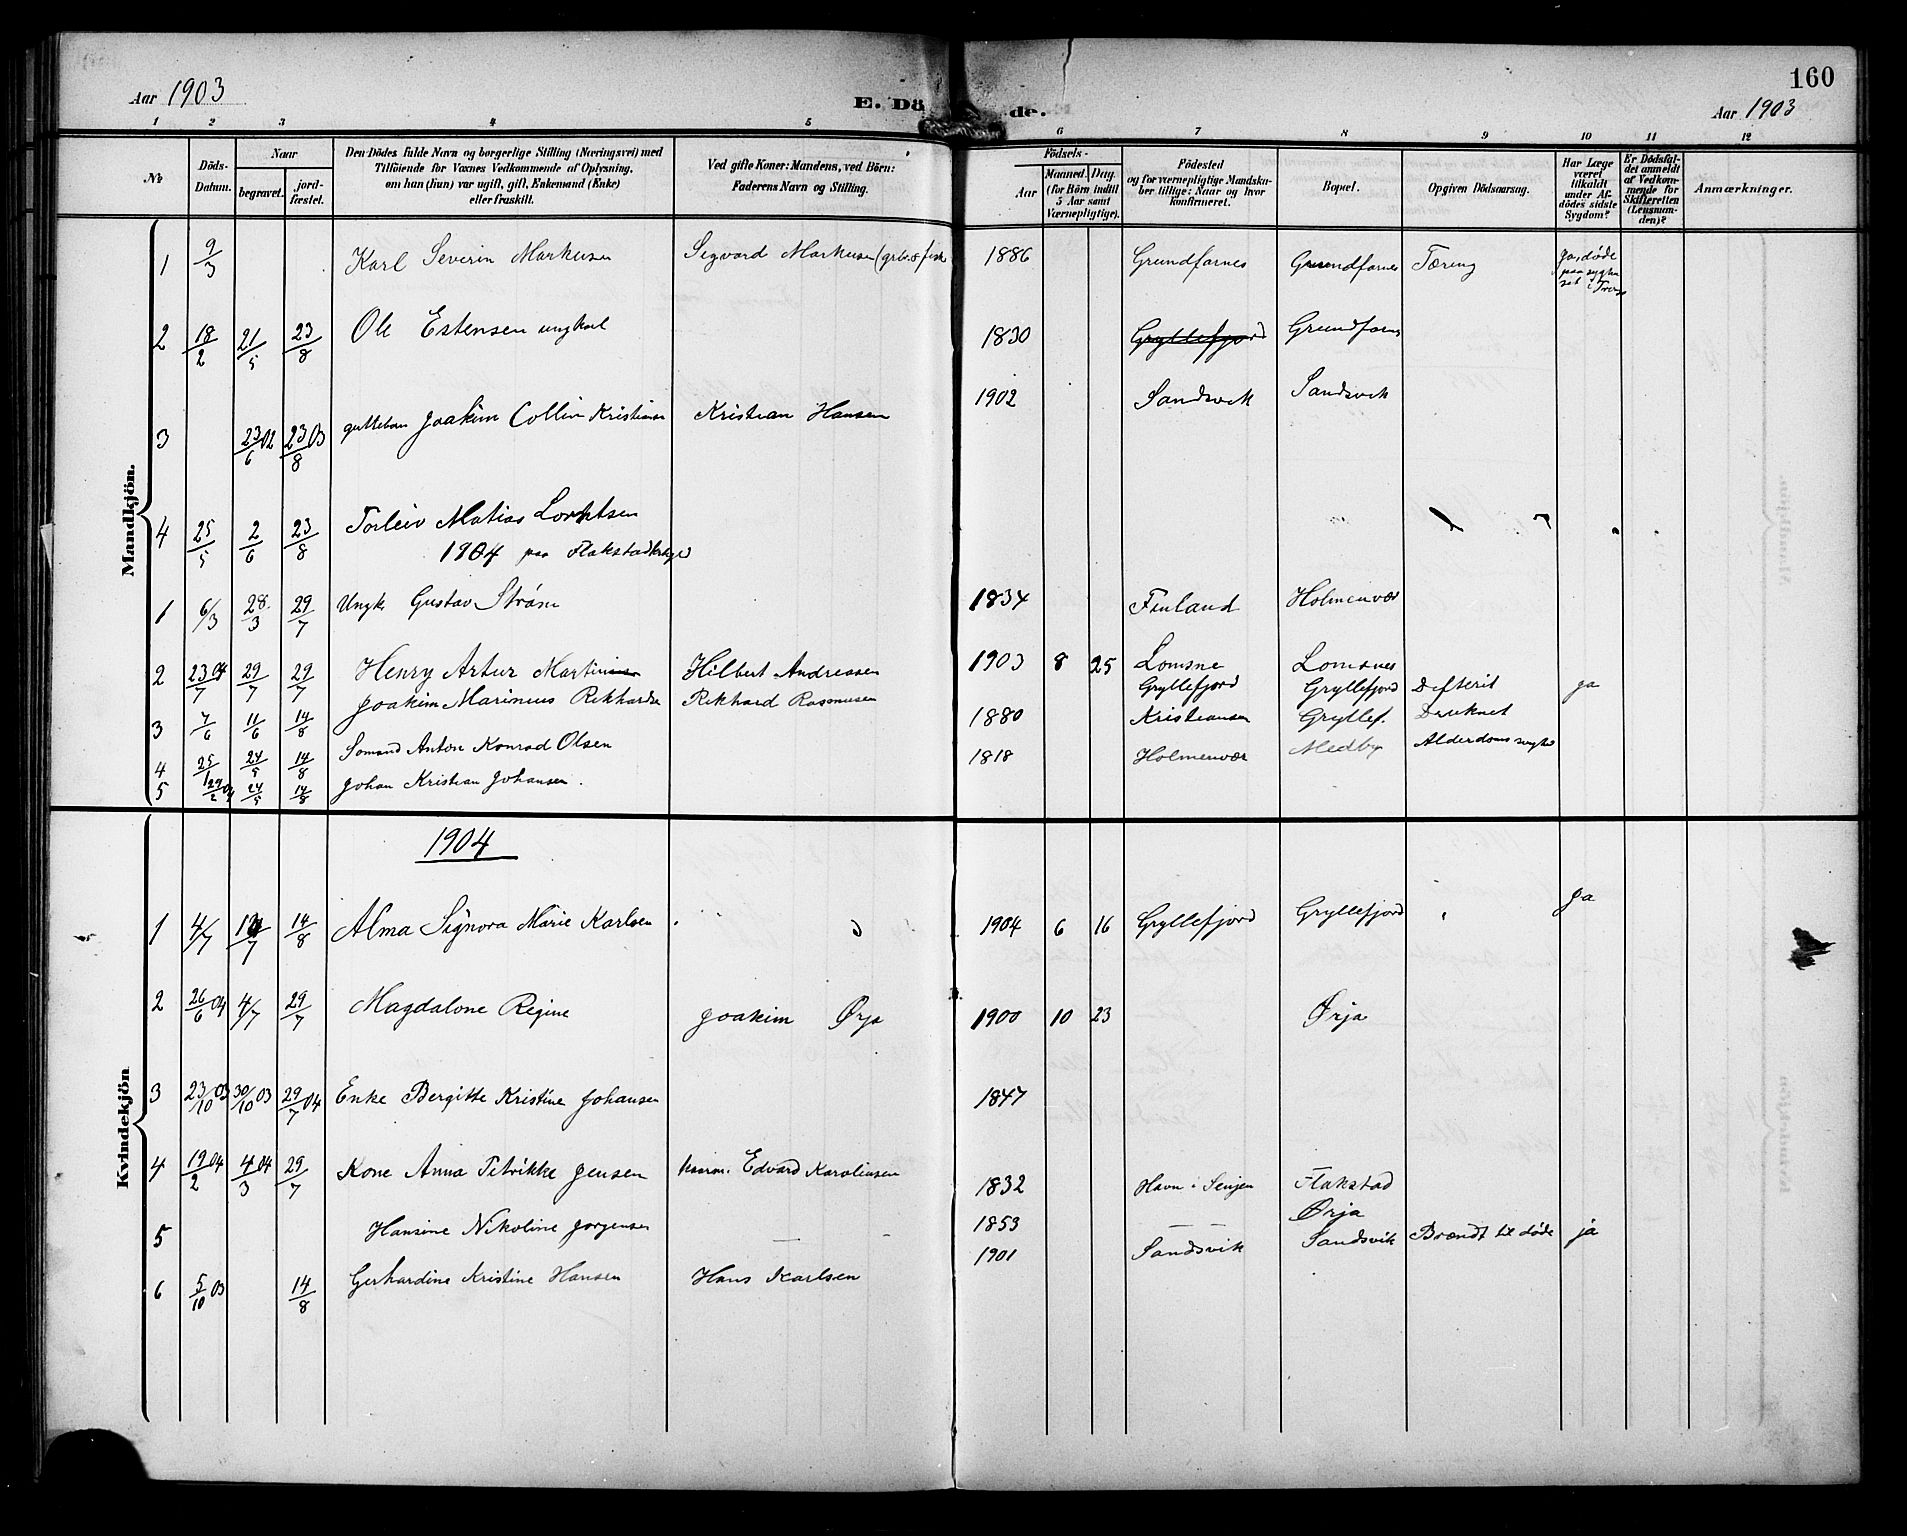 160
Aar 1903
E. Dö de.
Aar 1903
1 2 3 4 5 6 7 8 9 10 11 12
No
Döds-Datum.
Naar
begravet.
jord-fæstet.
Den Dödes fulde Navn og borgerlige Stilling (Næringsvei) med
Tilföiende for Voxnes Vedkommende af Oplysning,
om han (hun) var ugift, gift, Enkemand (Enke)
eller fraskilt.
Ved gifte Koner: Mandens, ved Börn:
Faderens Navn og Stilling.
Födsels-
Aar
Maaned. Dag.
(for Börn indtil
5 Aar samt
Værnepligtige).
Födested
og for værnepligtige Mandska-
ber tillige: Naar og hvor
konfirmeret.
Bopæl.
Opgiven Dödsaarsag.
Har Læge
været
tilkaldt
under Af-
dödes sidste
Sygdom?
Er Dödsfal-
det anmeldt
af Vedkom-
mende for
Skifteretten
(Lensman-
den)?
Anmærkninger.
Mandkjön.
1 9/3 Karl Severin Markusen Sigvard Markusen 1886 Grundfarnes Grundfarnes Tæring ja, døde paa
2 18/2 21/5 23/8 Ole Estensen ungkarl 1830 Gryllefjord Grundfarnes
3 23/6 02 23/8 03 guttebarn Joakim Collin Kristiansen Kristian Hansen 1902 Sandsvik Sandsvik
4 25/5 2/6 23/8 Torleiv Matias Lorntsen
1904 paa Flakstad
1 6/3 28/3 29/7 Ungk Gustav Strøm 1834 Finland Holmenvær
2 23/7 04 29/7 29/7 Henry Artur Martin Hilbert Andreassen 1903 8 25 Lomsne Lomsnes
3 7/6 11/6 14/8 Joakim Marinius Rikhardsen Rikhard Rasmusen 1880 Gryllefjord Gryllefjord Defterit ja
4 25/1 24/5 14/8 Sømand Anton Konrad Olsen 1818 Kristiansen Gryllef. Druknet
5 29/2 04 24/5 14/8 Johan Kristian Johansen. Holmenvær Medby Alderdoms
Kvindekjön
1904
1 4/7 /7 14/8 Alma Signora Marie Karlsen 1904 6 16 Gryllefjord Gryllefjord ja
2 26/6 04 4/7 29/7 Magdalone Regine Joakim Ørja 1900 10 23 Ørja
3 23/10 03 30/10 03 29/7 04 Enke Bergitte Kristine Johansen 1847
4 19/2 04 4/3 04 29/7 Kone Anna Petrikke Jensen Edvard Karoliusen 1832 Havn i Senjen Flakstad
5 Hansine Nikoline Jørgensen — 1853 — — Ørja
6 5/10 03 14/8 Gerhardine Kristine Hansen Hans Karlsen 1901 Sandsvik Sandsvik Brændt til døde ja